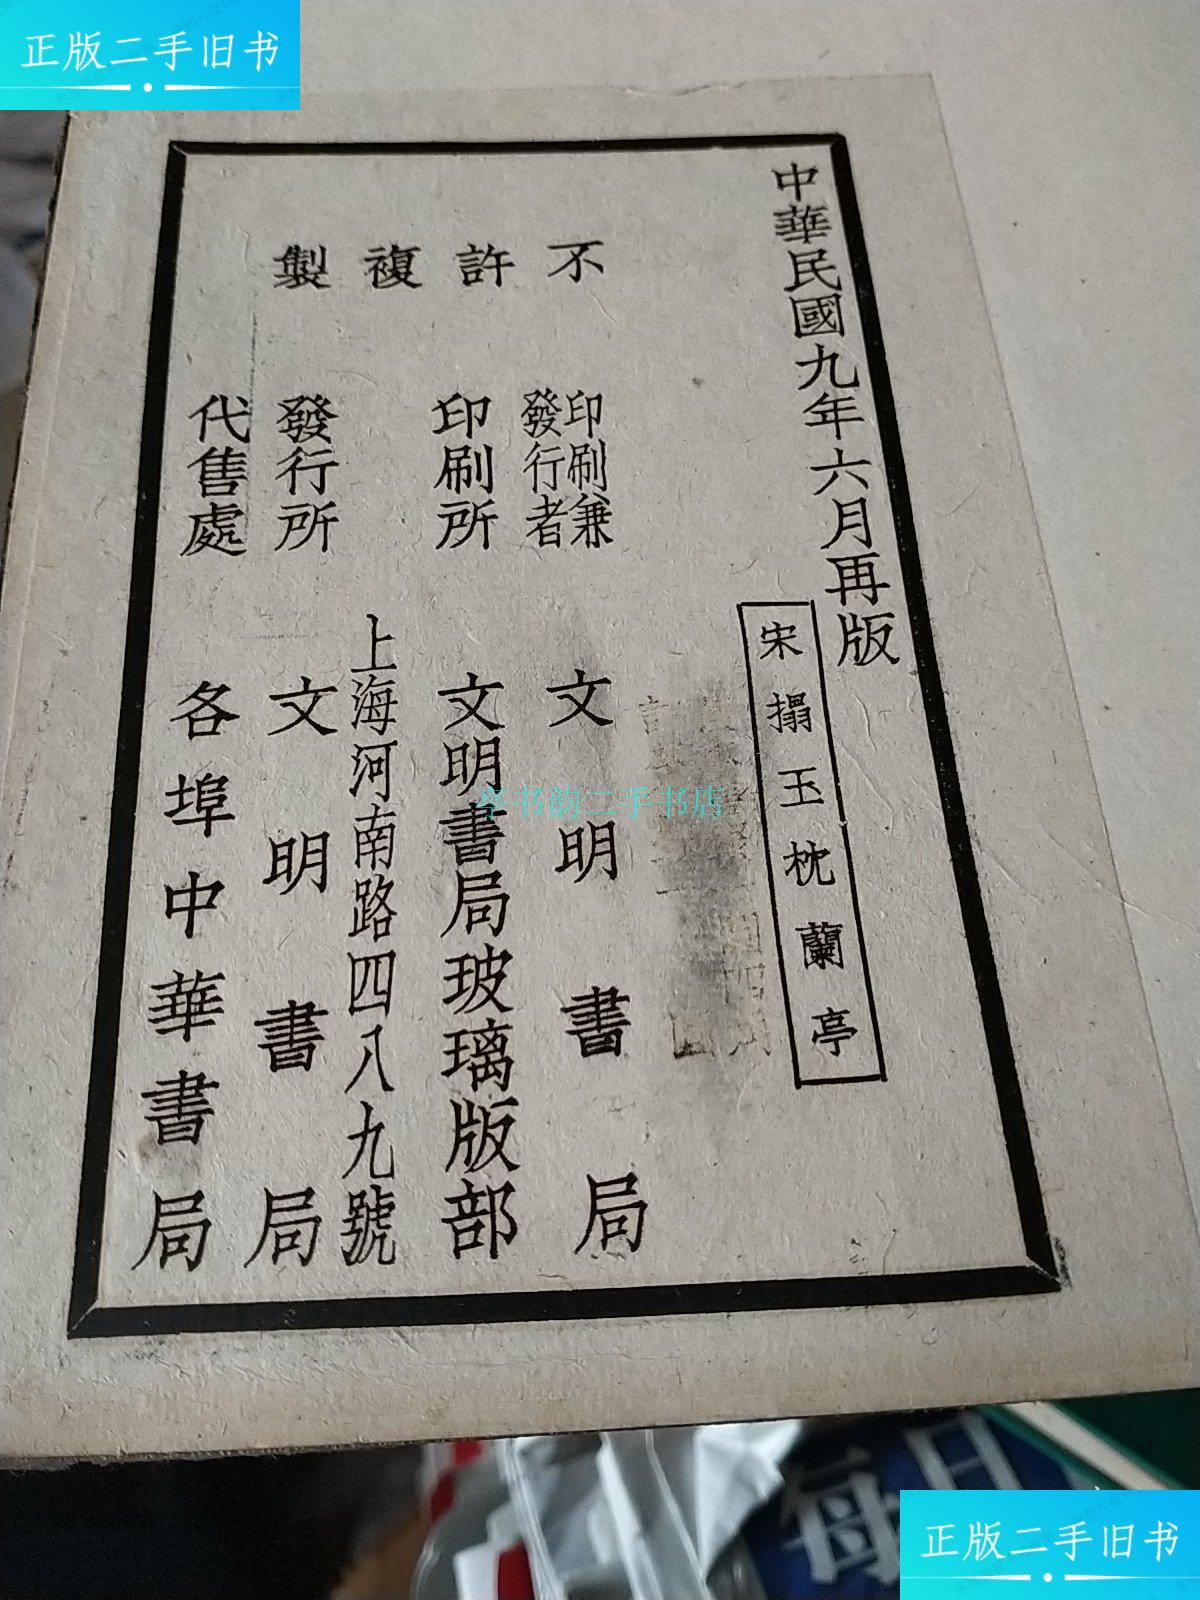 正版二手旧书
中華民國九年六月再版
宋搨玉枕蘭亭
不許複製
印刷兼
發行者
文明書局
印刷所
文明書局玻璃版部
上海河南路四八九號
發行所
文明書局
代售處
各埠中華書局
书韵二手书店
每日
正版二手旧书